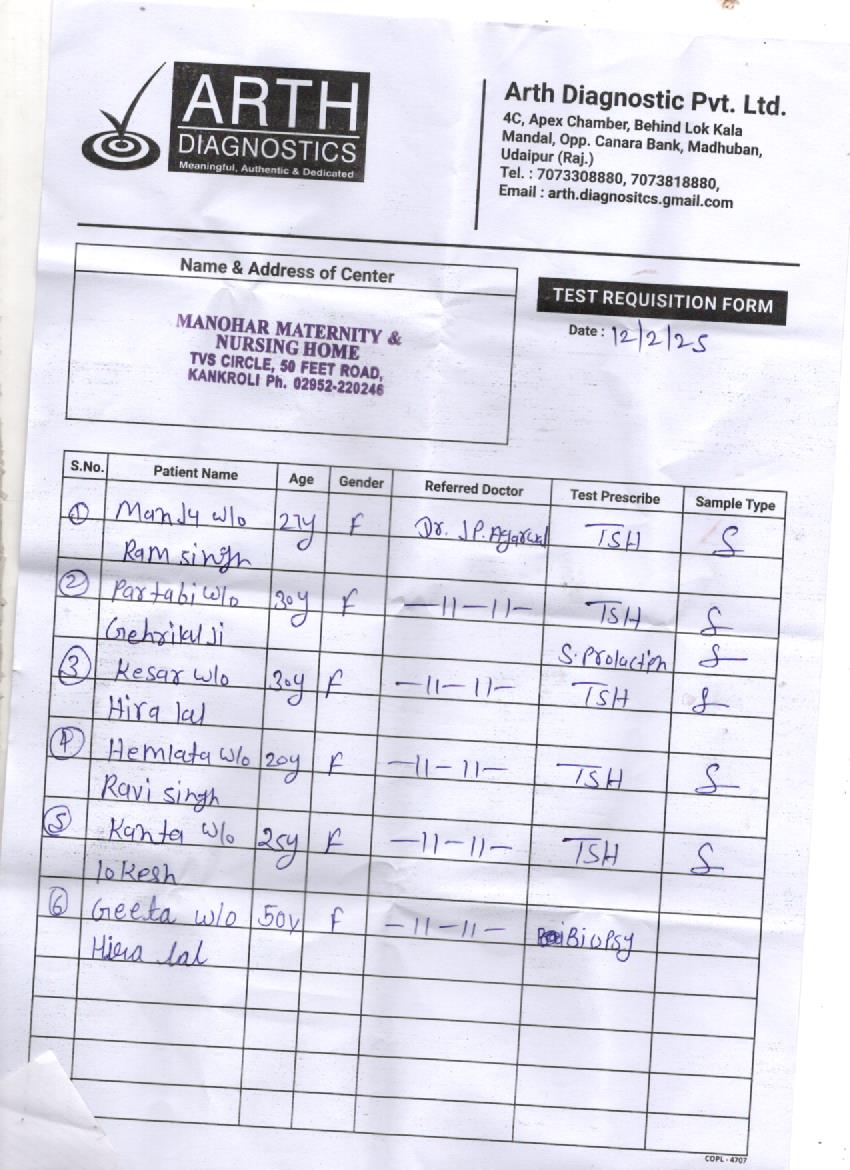 ARTH
DIAGNOSTICS
Meaningful, Authentic & Dedicated
Arth Diagnostic Pvt. Ltd.
4C, Apex Chamber, Behind Lok Kala
Mandal, Opp. Canara Bank, Madhuban,
Udaipur (Raj.)
Tel. : 7073308880, 7073818880,
Email : arth.diagnositcs.gmail.com
Name & Address of Center
MANOHAR MATERNITY &
NURSING HOME
TVS CIRCLE, 50 FEET ROAD,
KANKROLI Ph. 02952-220246
TEST REQUISITION FORM
Date : 12/2/25
S.No. Patient Name Age Gender Referred Doctor Test Prescribe Sample Type
1 Manju w/o 27y F Dr. J.P. Agarwal TSH S
Ram singh
2 Partabi w/o 30y F —11—11— TSH S
Gehrikul Ji S. Prolactin S
3 Kesar w/o 30y F —11—11— TSH S
Hira lal
4 Hemlata w/o 20y F —11—11— TSH S
Ravi singh
5 Kanta w/o 25y F —11—11— TSH S
lokesh
6 Geeta w/o 50y F —11—11— Biopsy
Hira lal
COPL - 4707